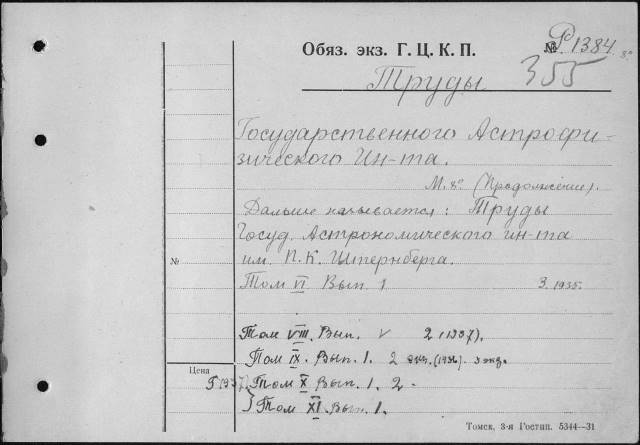 Обяз. экз. Г. Ц. К. П. № Р 1384 8°
355
Труды
Государственного Астрофи-
зического Ин-та.
М. 8° (Продолжение).
Дальше называется: Труды
Госуд. Астрономического ин-та
им. П.К. Штернберга.
№
Том VI Вып. 1 3. 1935.
Том VIII. Вып. 2 (1937).
Том IX. Вып. 1. 2 экз. (1936). 3 экз.
Цена
(1937) Том X Вып. 1. 2.
Том XI. Вып. 1.
Томск, 3-я Гостип. 5344—31